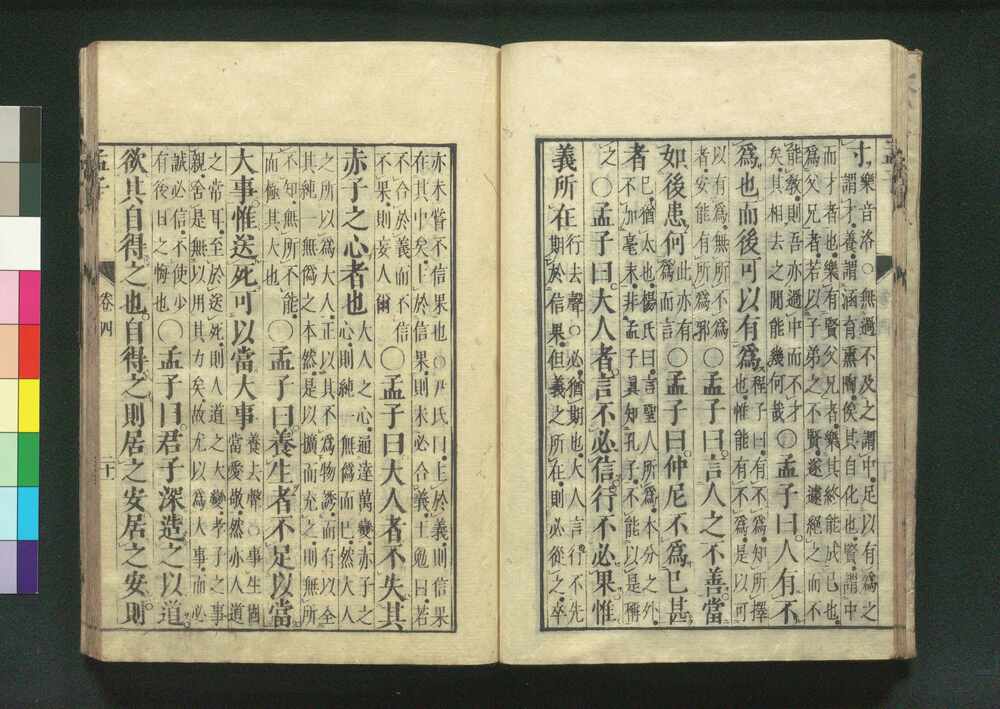 寸樂音洛○無過不及之謂中足以有為之
謂才養謂涵育薰陶俟其自化也賢謂中
而才者也樂有賢父兄者樂其終能成己也
為父兄者若以子弟之不賢遂遽絕之而不
能教則吾亦過中而不才
矣其相去之間能幾何哉○孟子曰人有不
爲也而後可以有爲程子曰有不爲知所擇
也惟能有不爲是以可
以有爲無所不爲
者安能有所爲邪○孟子曰言人之不善當
如後患何此亦有
爲而言○孟子曰仲尼不爲已甚
者已猶太也楊氏曰言聖人所爲本分之外
不加毫末非孟子真知孔子不能以是稱
之○孟子曰大人者言不必信行不必果惟
義所在行去聲○必猶期也大人言行不先
期於信果但義之所在則必從之卒
亦未嘗不信果也○尹氏曰主於義則信果
在其中矣主於信果則未必合義王勉曰若
不合於義而不信
不果則妄人爾○孟子曰大人者不失其
赤子之心者也大人之心通達萬變赤子之
心則純一無爲而已然大人
之所以爲大人正以其不爲物誘而有以全
其純一無爲之本然是以擴而充之則無所
不知無所不能
而極其大也○孟子曰養生者不足以當
大事惟送死可以當大事養去聲○事生固
當愛敬然亦人道
之常耳至於送死則人道之大變孝子之事
親舍是無以用其力矣故尤以爲大事而必
誠必信不使少
有後日之悔也○孟子曰君子深造之以道
欲其自得之也自得之則居之安居之安則
孟子 卷四 二十